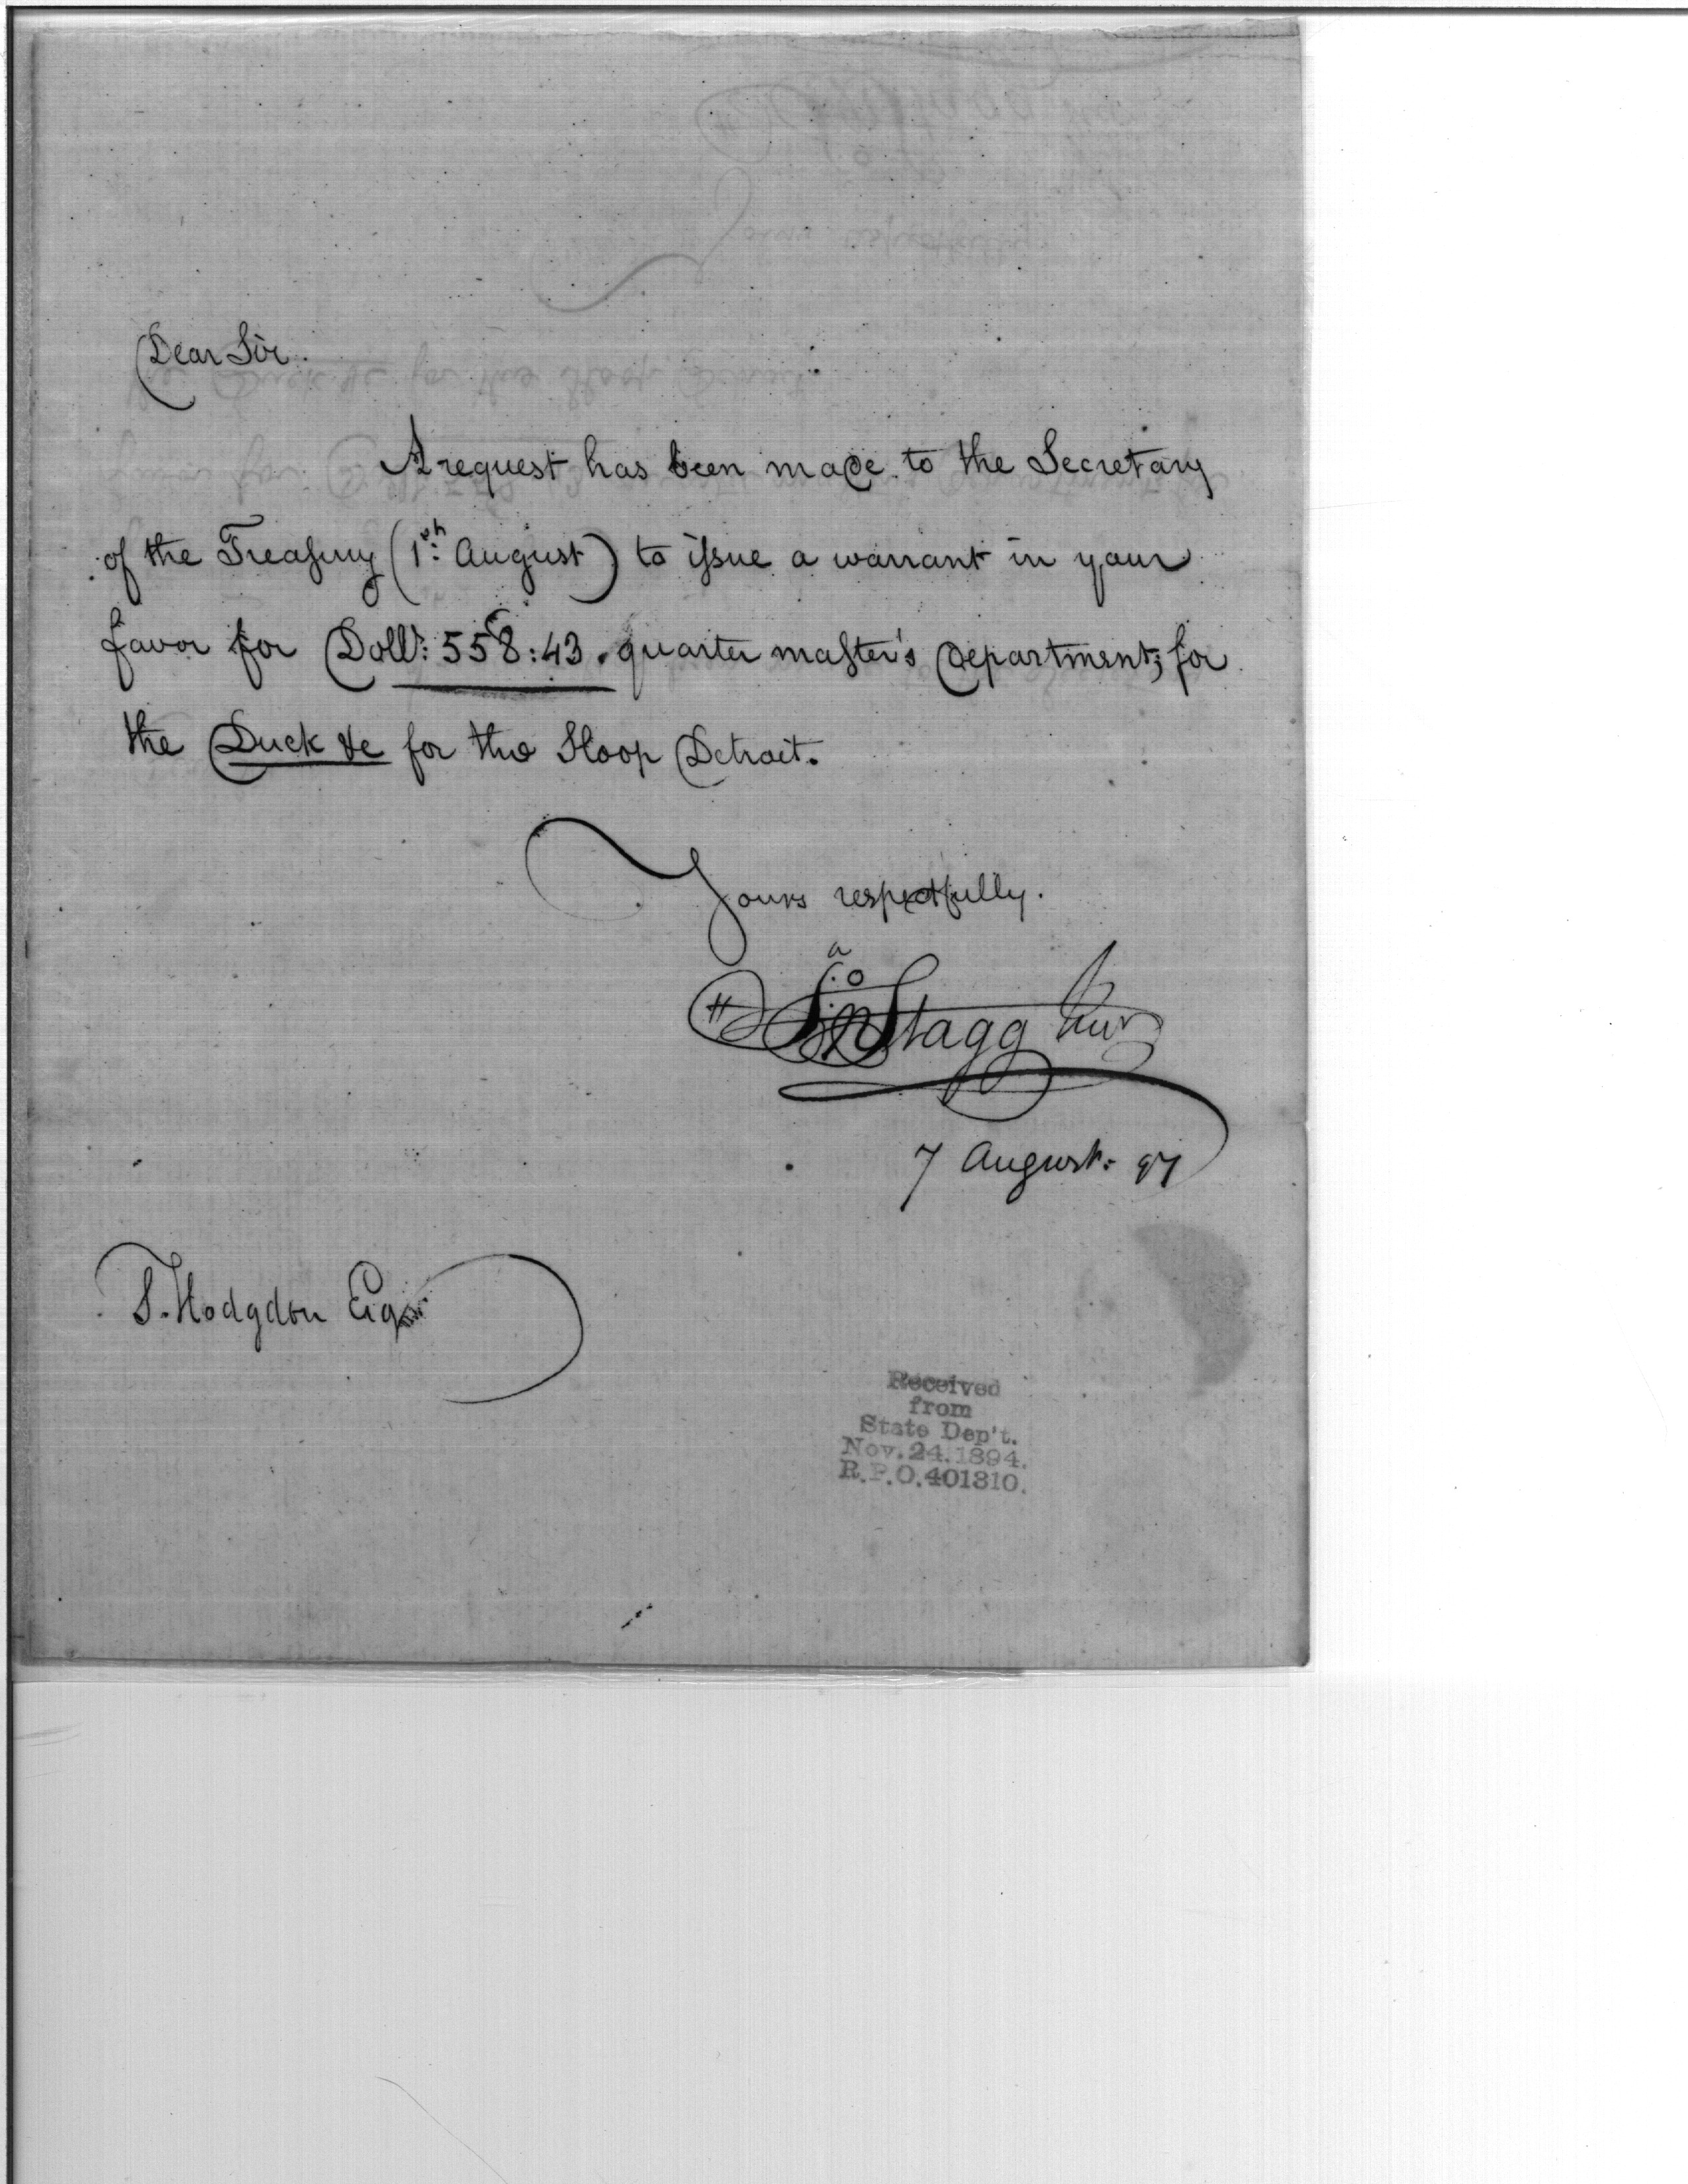 Dear Sir.
A request has been made to the Secretary
of the Treasury (1th August) to issue a warrant in your
favor for Dolls: 558:43. quarter master's department; for
the Duck &c for the Sloop Detroit.
Yours respectfully.
Jno Stagg Junr
7 August. 97
S. Hodgdon Esqr
Received
from
State Dep't.
Nov. 24. 1894.
R.P.O. 401310.